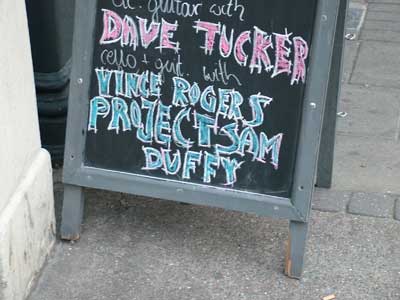 guitar with
DAVE TUCKER
cello + with
VINCE ROGERS
PROJECT SAM
DUFFY